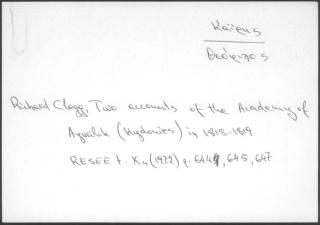 Καΐρης
Θεόφιλος
Richard Clogg, Two accounts of the Academy of
Ayvalik (Kydonies) in 1818-1819
RESEE t. X4 (1972) p. 644, 645, 647